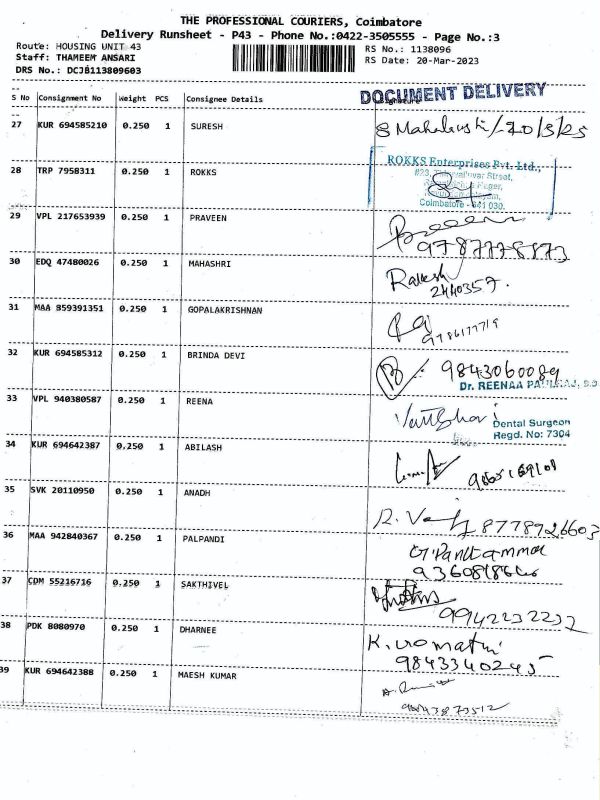 THE PROFESSIONAL COURIERS, Coimbatore
Delivery Runsheet - P43 - Phone No.:0422-3505555 - Page No.:3
Route: HOUSING UNIT 43
RS No.: 1138096
Staff: THAMEEM ANSARI
RS Date: 20-Mar-2023
DRS No.: DCJB113809603
S No Consignment No Weight PCS Consignee Details
DOCUMENT DELIVERY
27 KUR 694585210 0.250 1 SURESH
28 TRP 7958311 0.250 1 ROKKS
ROKKS Enterprises Pvt. Ltd.,
Coimbatore - 641 030.
29 VPL 217653939 0.250 1 PRAVEEN
30 EDQ 47480026 0.250 1 MAHASHRI
Rakesh
2440357.
31 MAA 859391351 0.250 1 GOPALAKRISHNAN
9786177719
32 KUR 694585312 0.250 1 BRINDA DEVI
9843060089
Dr. REENAA
33 VPL 940380587 0.250 1 REENA
Dental Surgeon
Regd. No: 7304
34 KUR 694642387 0.250 1 ABILASH
35 SVK 20110950 0.250 1 ANADH
8778926603
36 MAA 942840367 0.250 1 PALPANDI
37 CDM 55216716 0.250 1 SAKTHIVEL
9942232232
38 PDK 8080970 0.250 1 DHARNEE
K. Uomathi
9843340245
39 KUR 694642388 0.250 1 MAESH KUMAR